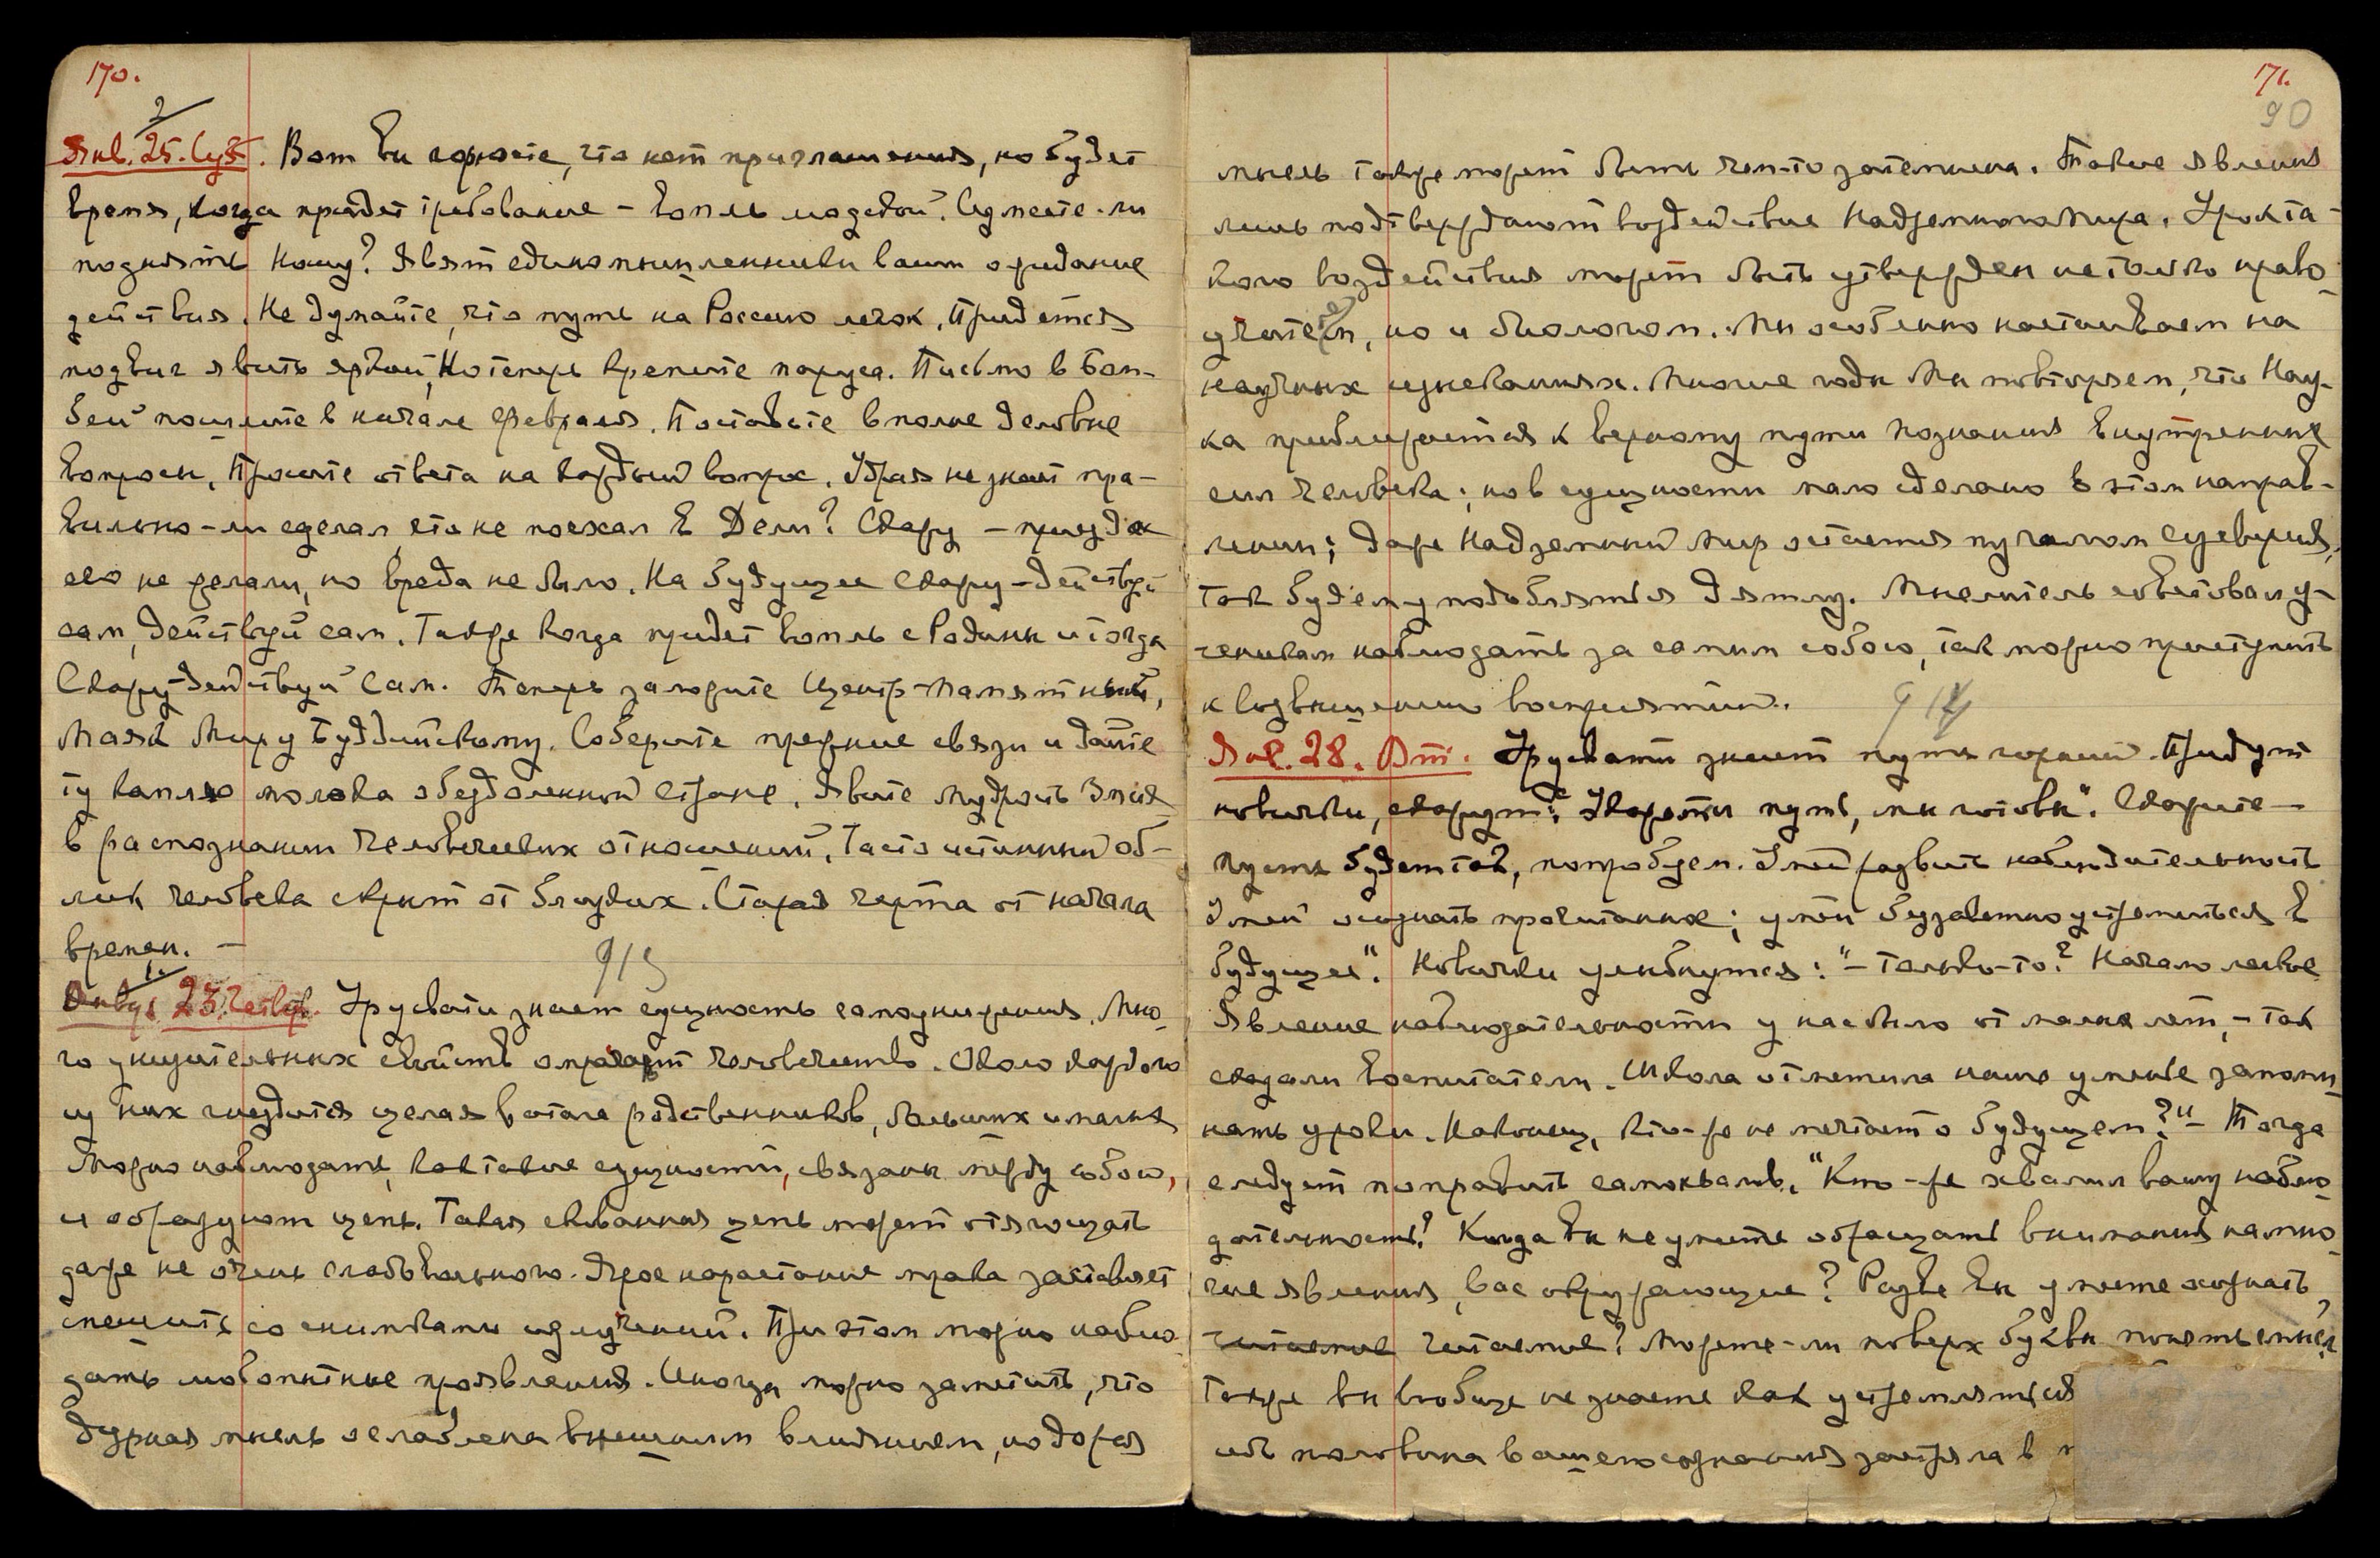 170.
2
Янв. 25. Суб. Вот вы горюете, что нет приглашения, но будет
время, когда придет требование – вопль людской. Сумеете-ли
поднять ношу? Явят единомышленники ваши ожидание
действия. Не думайте, что путь на Россию легок. Придется
подвиг явить яркий, Но теперь крепите паруса. Письмо в Бом-
бей пошлите в начале февраля. Поставьте вполне деловые
вопросы. Просите ответа на каждый вопрос. Удрая не знает пра-
вильно-ли сделал, что не поехал в Дели? Скажу – приезда
его не желали, но вреда не было. На будущее скажу – действуй
сам, действуй сам. Также когда придет вопль с Родины и тогда
Скажу – действуй Сам. Теперь заложите Центр-памятный,
Маяк Миру Буддийскому. Соберите прежние связи и дайте
ту каплю молока обездоленной стране. Явите мудрость Змия
в распознании человеческих отношений. Часто истинный об-
лик человека скрыт от близких. Старая черта от начала
времен. –
1.
913
Январь 23. Четверг. Урусвати знает сущность самоунижения. Мно-
го унизительных свойств омрачает человечество. Около каждого
из них гнездится целая ватага родственников, больших и малых
Можно наблюдать, как такие сущности, связаны между собою,
и образуют цепь. Такая скованная цепь может отягощать
даже не очень слабовольного. Такое нарастание мрака заставляет
спешить со снимками излучений. При этом можно наблю-
дать любопытные проявления. Иногда можно заметить, что
дурная мысль ослаблена внешним влиянием, но добрая
171.
90
мысль также может быть чем-то затемнена. Такие явления
лишь подтверждают воздействие Надземного Мира. Урок та-
кого воздействия может быть утвержден не только право
учителем, но и биологом. Мы особенно настаиваем на
научных изысканиях. Многие годы Мы повторяем, что Нау-
ка приближается к верному пути познания внутренних
сил человека; но в сущности мало сделано в этом направ-
лении; даже Надземный Мир остается пугалом суеверия,
так будем уподобляться дятлу. Мыслитель советовал у-
ченикам наблюдать за самим собою, так можно приступить
к возвышению восприятий.
914
Янв. 28. Вт. Урусвати знает пути горний. Придут
новички, скажут: "Укажи путь, мы готовы". Скажите –
пусть будет так, попробуем. Умей развить наблюдательность
Умей осознать прочитанное; умей беззаветно устремиться в
будущее". Новички улыбнутся: "– Только-то? Начало легкое
Явление наблюдательности у нас было от малых лет, – так
сказали воспитатели. Школа отметила наше умение запоми-
нать уроки. Наконец, кто-же не мечтает о будущем?" – Тогда
следует поправить самохвалов. "Кто-же хвалил вашу наблю-
дательность? Когда вы не умеете обращать внимания на мно-
гие явления, вас окружающие? Разве вы умеете осознать
читаемое читаемое? Можете-ли поверх буквы понять смысл
Также вы вообще не знаете как устремляться
ибо половина вашего сознания застряла в